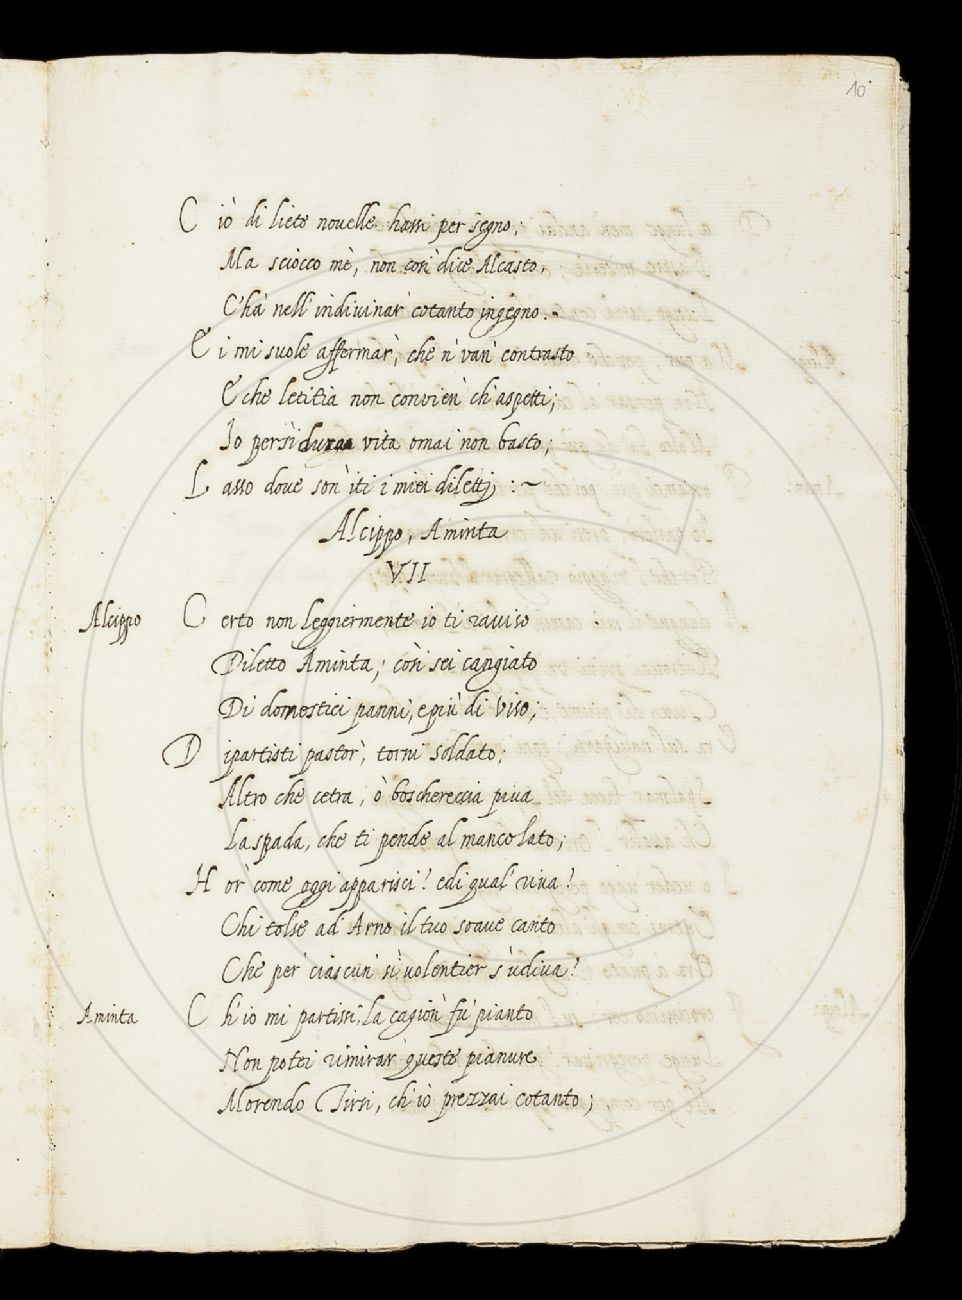 10
Ciò di liete nouelle hassi per segno;
Ma sciocco mè, non così dice Alcasto,
C'hà nell'indiuinar' cotanto ingegno.
Ei mi suole affermar', che n'van' contrasto
E che letitia non convien' ch'aspetti;
Io per sì dura vita omai non basto;
Lasso doue son' iti i miei diletti :~
Alcippo, Aminta
VII
Alcippo Certo non leggiermente io ti rauiso
Diletto Aminta; così sei cangiato
Di domestici panni, e più di Viso;
Dipartisti pastor', torni soldato;
Altro che cetra, ò boschereccia piua
La spada, che ti pende al manco lato;
Hor' come oggi apparisci! e di qual' riua!
Chi tolse ad' Arno il tuo soaue canto
Che per' ciascun' sì volentier s'udiua!
Aminta Ch'io mi partissi, la cagion' fu' pianto
Non potei rimirar' queste pianure
Morendo Tirsi, ch'io prezzai cotanto;